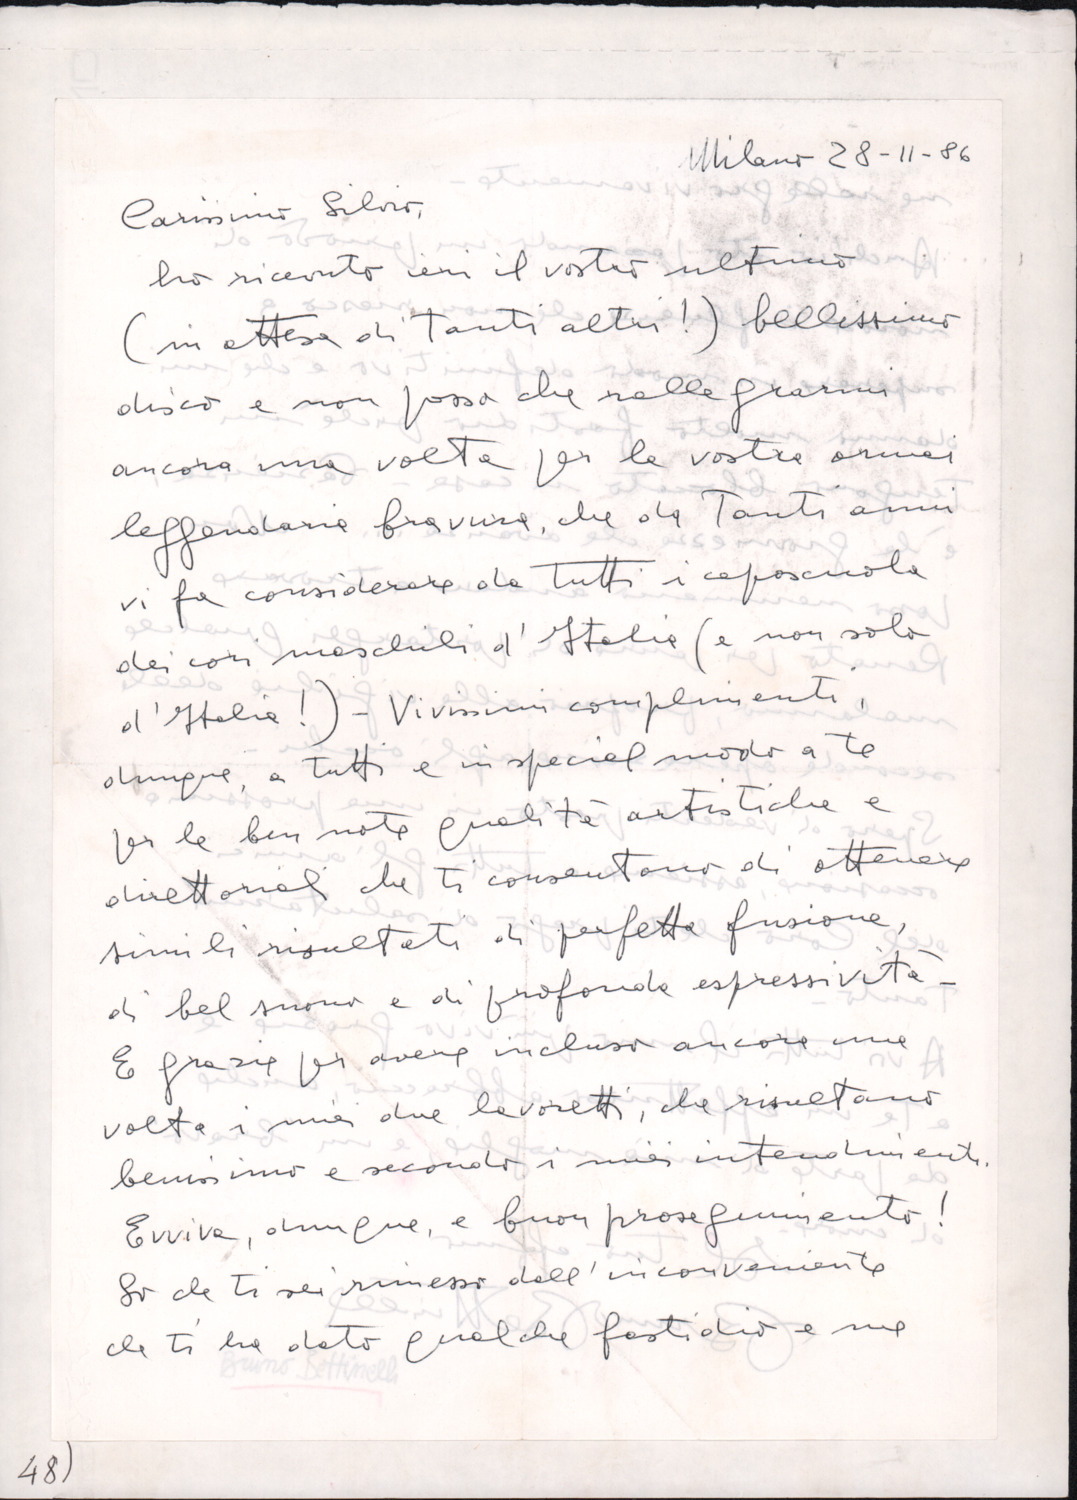 Milano 28-11-86
Carissimo Silvio,
ho ricevuto ieri il vostro ultimo
(in attesa di tanti altri!) bellissimo
disco e non posso che rallegrarmi
ancora una volta per la vostra ormai
leggendaria bravura, che da tanti anni
vi fa considerare da tutti i caposcuola
dei cori maschili d'Italia (e non solo
d'Italia!) - Vivissimi complimenti,
dunque, a tutti e in special modo a te
per le ben note qualità artistiche e
direttoriali che ti consentono di ottenere
simili risultati di perfetta fusione,
di bel suono e di profonda espressività -
E grazie per avere incluso ancora una
volta i miei due lavoretti, che risultano
benissimo e secondo i miei intendimenti.
Evviva, dunque, e buon proseguimento!
So che ti sei rimesso dall'inconveniente
che ti ha dato qualche fastidio e me
Bruno Bettinelli
48)